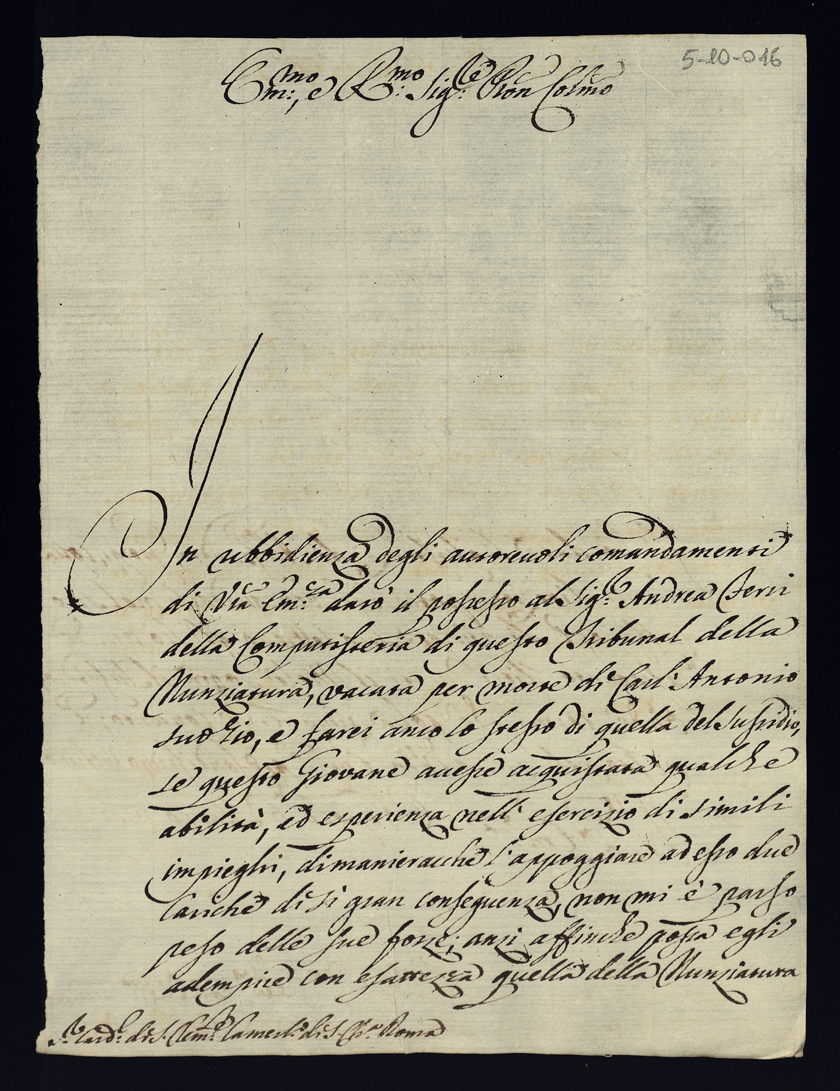 5-10-016
Em:mo, e R:mo Sig:re Pron Colmo
In ubbidienza degli autorevoli comandamenti
di Vra Em:za darò il possesso al Sig:r Andrea Terri
della Computisteria di questo Tribunal della
Nunziatura, vacata per morte di Carl' Antonio
suo Zio, e farei anco lo stesso di quella del Sussidio,
se questo Giovane avesse acquistata qualche
abilità, ed esperienza nell' esercizio di simili
impieghi, dimanieracchè l'appoggiare ad esso due
Cariche di sì gran conseguenza, non mi è parso
peso delle sue forze, anzi affinche possa egli
adempire con esattezza quella della Nunziatura
S:r Card:l di S. Clem:te Camerl:o di S. Ch:a Roma